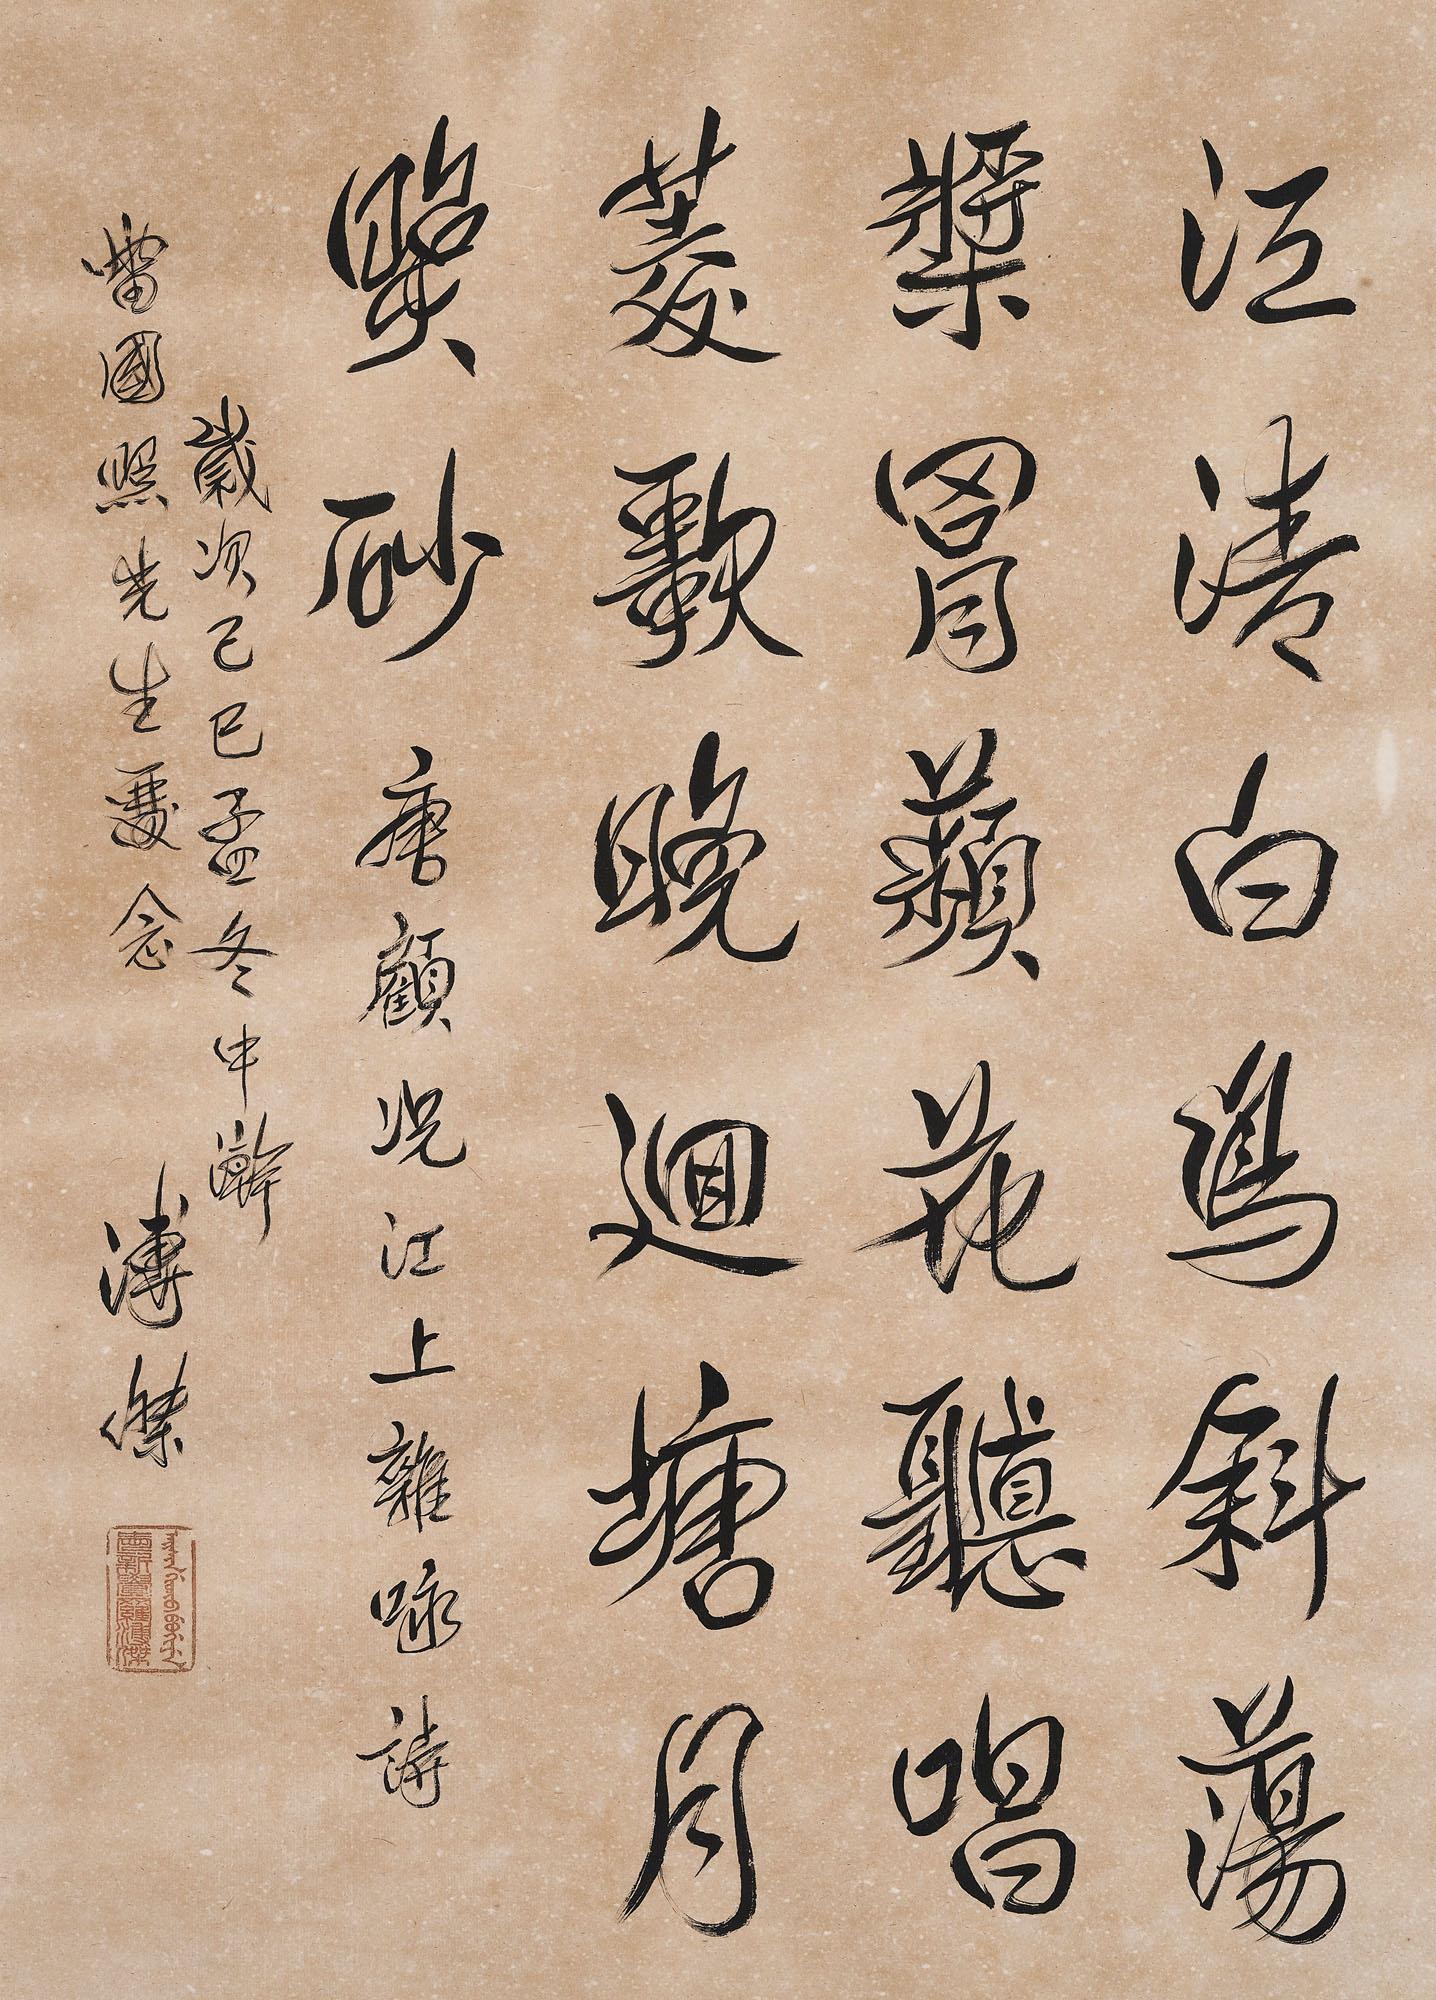 江清白鳥斜蕩
槳罥蘋花聽唱
菱歌晚迴塘月
照砂 唐顧况江上雜咏詩
歲次己巳孟冬中澣
曹國照先生愛念 溥傑